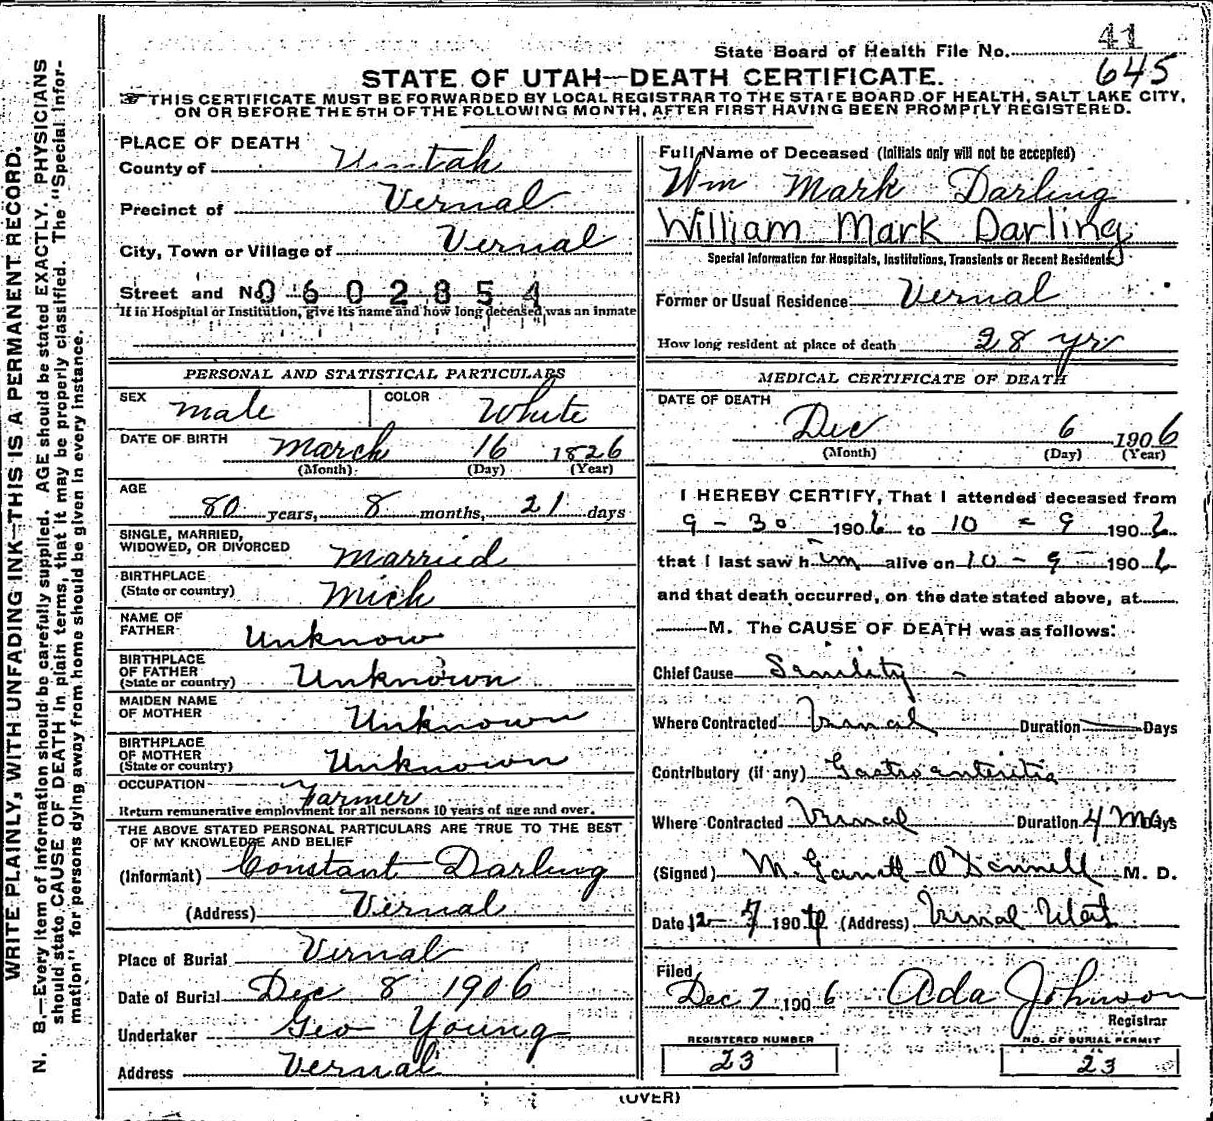 41
State Board of Health File No. 645
STATE OF UTAH—DEATH CERTIFICATE.
THIS CERTIFICATE MUST BE FORWARDED BY LOCAL REGISTRAR TO THE STATE BOARD OF HEALTH, SALT LAKE CITY,
ON OR BEFORE THE 5TH OF THE FOLLOWING MONTH, AFTER FIRST HAVING BEEN PROMPTLY REGISTERED.
WRITE PLAINLY, WITH UNFADING INK—THIS IS A PERMANENT RECORD.
N. B.—Every item of information should be carefully supplied. AGE should be stated EXACTLY. PHYSICIANS
should state CAUSE OF DEATH in plain terms, that it may be properly classified. The "Special Infor-
mation" for persons dying away from home should be given in every instance.
PLACE OF DEATH
County of Uintah
Precinct of Vernal
City, Town or Village of Vernal
Street and No. 0602854
If in Hospital or Institution, give its name and how long deceased was an inmate
PERSONAL AND STATISTICAL PARTICULARS
SEX male COLOR White
DATE OF BIRTH March 16 1826
(Month) (Day) (Year)
AGE
80 years, 8 months, 21 days
SINGLE, MARRIED,
WIDOWED, OR DIVORCED Married
BIRTHPLACE
(State or country) Mich
NAME OF
FATHER Unknow
BIRTHPLACE
OF FATHER
(State or country) Unknown
MAIDEN NAME
OF MOTHER Unknown
BIRTHPLACE
OF MOTHER
(State or country) Unknown
OCCUPATION Farmer
Return remunerative employment for all persons 10 years of age and over.
THE ABOVE STATED PERSONAL PARTICULARS ARE TRUE TO THE BEST
OF MY KNOWLEDGE AND BELIEF
(Informant) Constant Darling
(Address) Vernal
Place of Burial Vernal
Date of Burial Dec 8 1906
Undertaker Geo Young
Address Vernal
Full Name of Deceased (Initials only will not be accepted)
Wm Mark Darling
William Mark Darling
Special Information for Hospitals, Institutions, Transients or Recent Residents.
Former or Usual Residence Vernal
How long resident at place of death 28 yr
MEDICAL CERTIFICATE OF DEATH
DATE OF DEATH
Dec 6 1906
(Month) (Day) (Year)
I HEREBY CERTIFY, That I attended deceased from
9 - 30 1906 to 10 - 9 1906
that I last saw him alive on 10 - 9 1906
and that death occurred, on the date stated above, at
M. The CAUSE OF DEATH was as follows:
Chief Cause Senility
Where Contracted Vernal Duration Days
Contributory (if any) Gastro enteritis
Where Contracted Vernal Duration 4 Mo Days
(Signed) M. M. D.
Date 12 - 7 1906 (Address) Vernal Utah
Filed
Dec 7 1906 Ada Johnson
Registrar
REGISTERED NUMBER
23
NO. OF BURIAL PERMIT
23
(OVER)